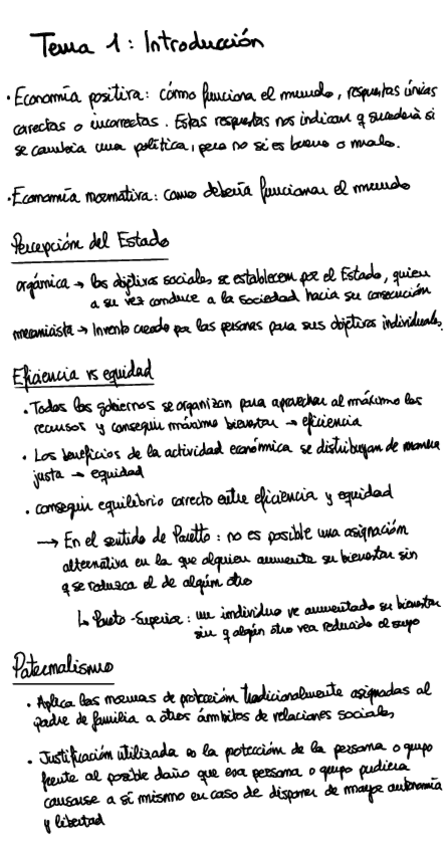 Tema 1: Introducción
· Economía positiva: cómo funciona el mundo, respuestas únicas
correctas o incorrectas. Estas respuestas nos indican q sucederá si
se cambia una política, pero no si es bueno o malo.
· Economía normativa: como debería funcionar el mundo
Percepción del Estado
orgánica → los objetivos sociales se establecen por el Estado, quien
a su vez conduce a la sociedad hacia su consecución
mecanicista → Invento creado por las personas para sus objetivos individuales.
Eficiencia vs equidad
· Todos los gobiernos se organizan para aprovechar al máximo los
recursos y conseguir máximo bienestar → eficiencia
· Los beneficios de la actividad económica se distribuyan de manera
justa → equidad
· conseguir equilibrio correcto entre eficiencia y equidad
→ En el sentido de Paretto: no es posible una asignación
alternativa en la que alguien aumente su bienestar sin
q se reduzca el de algún otro
↳ Pareto-Superior: un individuo ve aumentado su bienestar
sin q algún otro vea reducido el suyo
Paternalismo
· Aplica las normas de protección tradicionalmente asignadas al
padre de familia a otros ámbitos de relaciones sociales,
· Justificación utilizada es la protección de la persona o grupo
frente al posible daño que esa persona o grupo pudiera
causarse a sí mismo en caso de disponer de mayor autonomía
y libertad